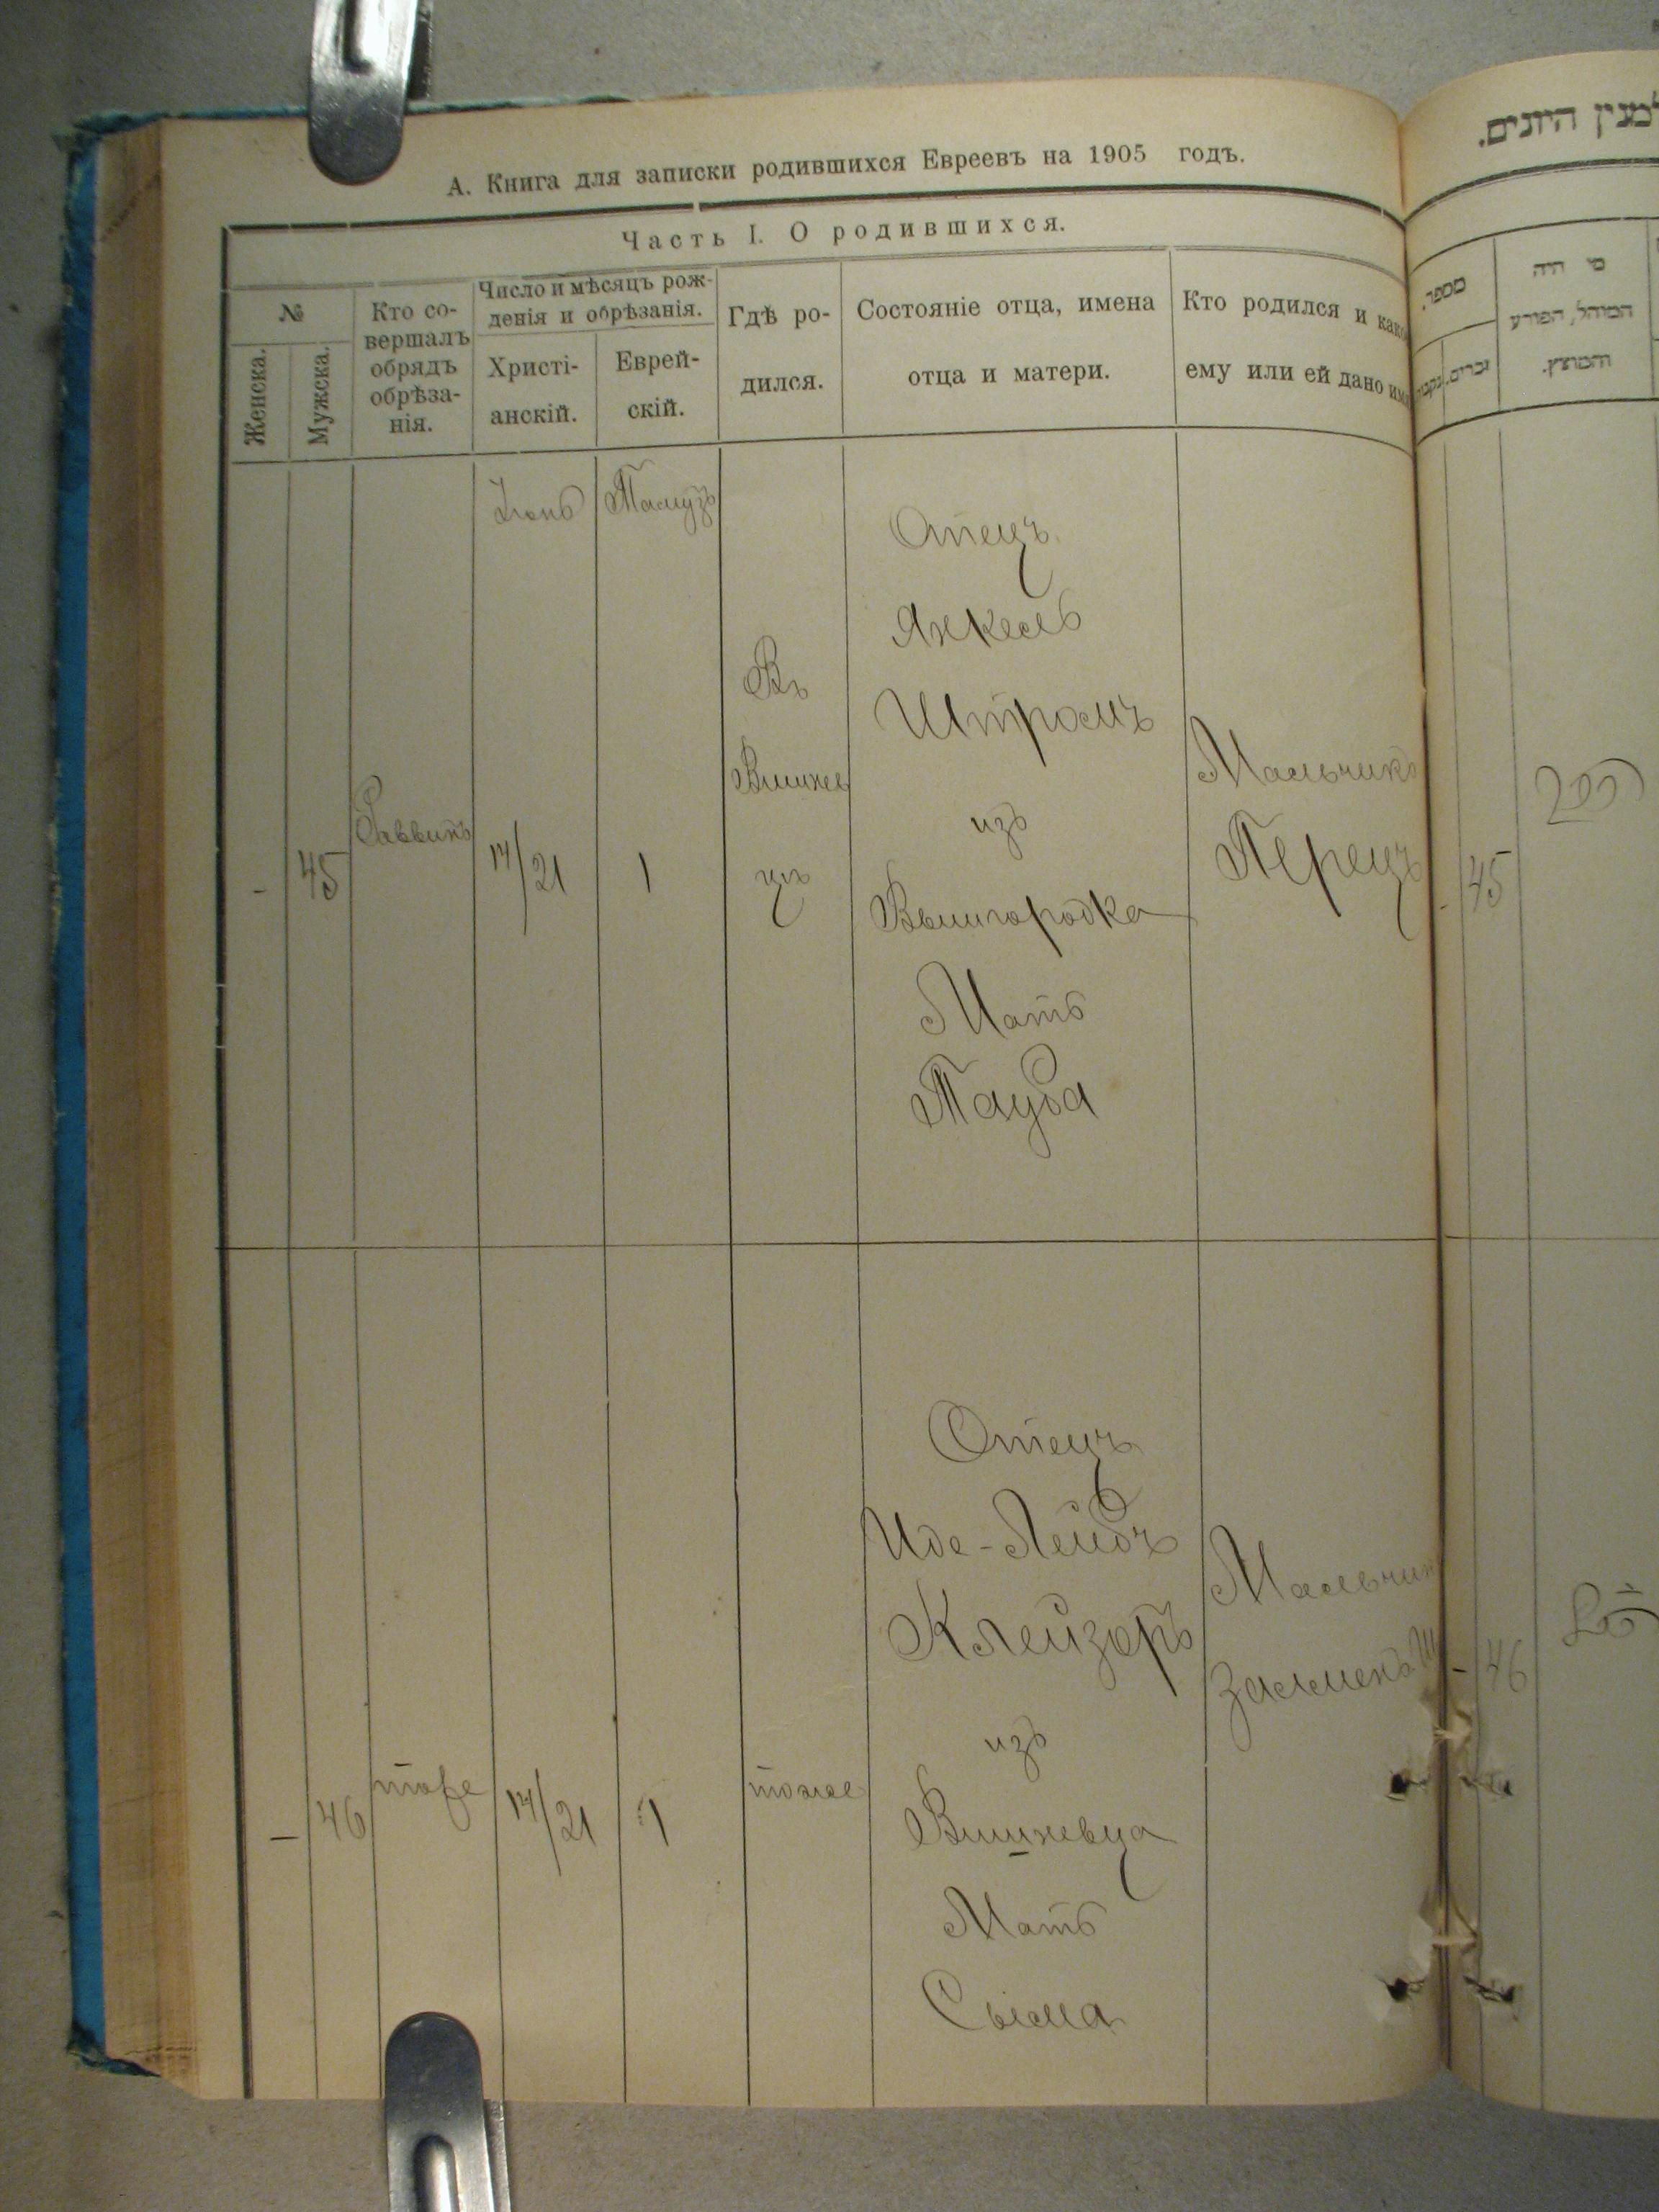 А. Книга для записки родившихся Евреевъ на 1905 годъ.
Часть I. О родившихся.
№
Женска.
Мужска.
Кто со-
вершалъ
обрядъ
обрѣза-
нія.
Число и мѣсяцъ рож-
денія и обрѣзанія.
Христі-
анскій.
Еврей-
скій.
Гдѣ ро-
дился.
Состояніе отца, имена
отца и матери.
Кто родился и како
ему или ей дано им
Тамузъ
-
45
Раввинъ
14/21
1
Въ
Вишнев
цѣ
Отецъ
Янкель
Штромъ
изъ
Вышгородка
Мать
Тауба
Мальчикъ
Перецъ
-
46
тоже
14/21
1
тоже
Отецъ
Иде-Лейбъ
Клейзоръ
изъ
Вишневца
Мать
Сыма
Мальчик
Залменъ
למנין היונים.
מספר.
זכרים.
מי היה
המוהל, הפורע
והמוצץ.
-
45
-
46